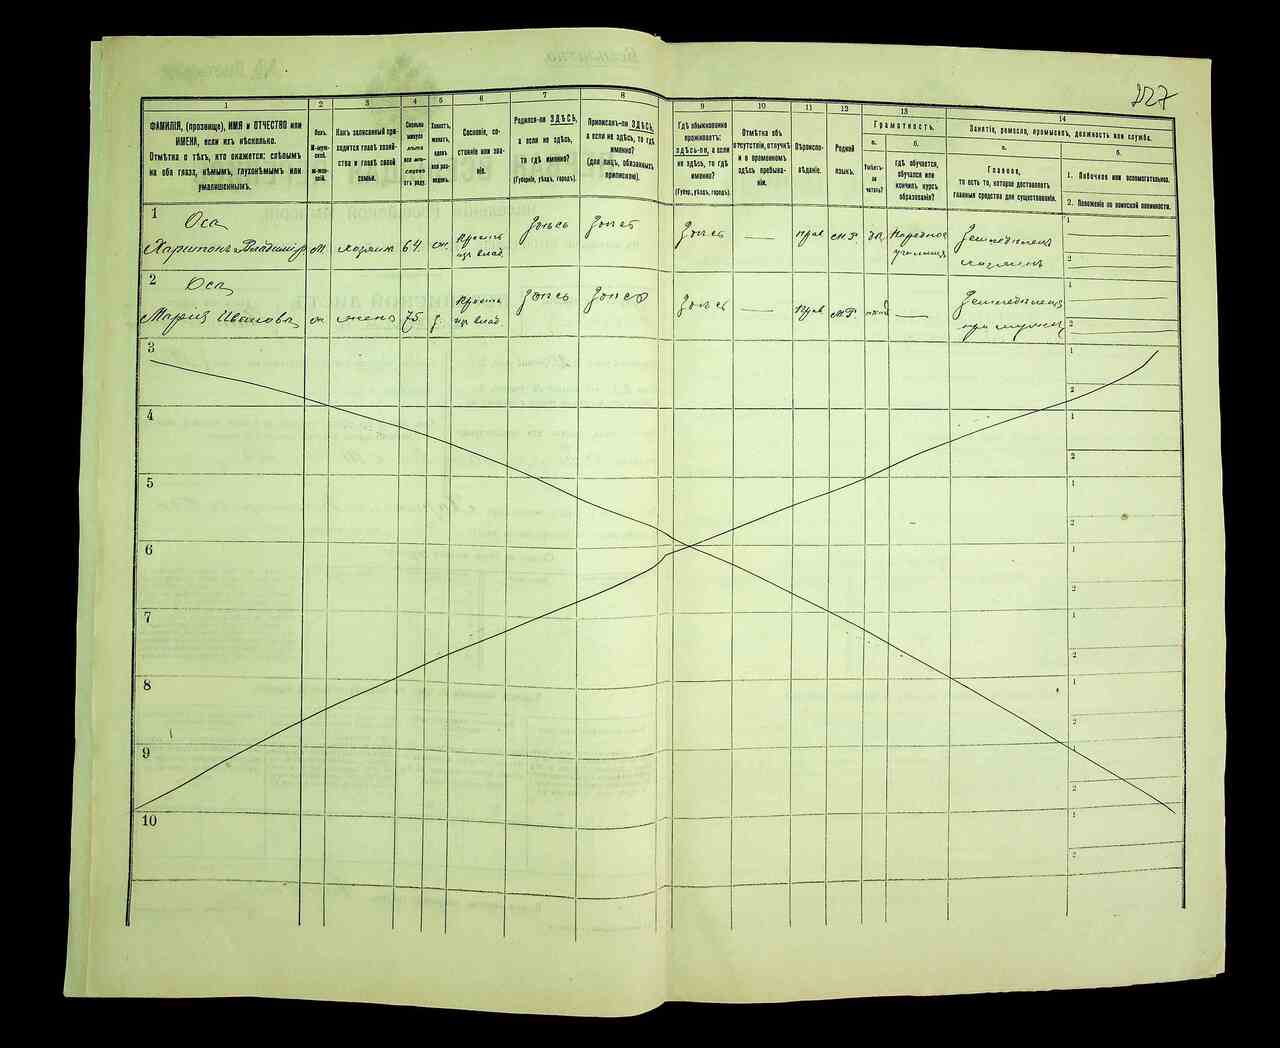 227
1
2
3
4
5
6
7
8
9
10
11
12
13
14
ФАМИЛІЯ, (прозвище), ИМЯ и ОТЧЕСТВО или
ИМЕНА, если ихъ нѣсколько.
Отмѣтка о тѣхъ, кто окажется: слѣпымъ
на оба глаза, нѣмымъ, глухонѣмымъ или
умалишеннымъ.
Полъ.
М-муж-
ской.
Ж-жен-
скій.
Какъ записанный при-
ходится главѣ хозяй-
ства и главѣ своей
семьи.
Сколько
минуло
лѣтъ
или мѣ-
сяцевъ
отъ роду.
Холостъ,
женатъ,
вдовъ
или раз-
веденъ.
Сословіе, со-
стояніе или зва-
ніе.
Родился-ли ЗДѢСЬ,
а если не здѣсь,
то гдѣ именно?
(Губернія, уѣздъ, городъ).
Приписанъ-ли ЗДѢСЬ,
а если не здѣсь, то гдѣ
именно?
(для лицъ, обязанныхъ
припискою).
Гдѣ обыкновенно
проживаетъ:
здѣсь-ли, а если
не здѣсь, то гдѣ
именно?
(Губер., уѣздъ, городъ).
Отмѣтка объ
отсутствіи, отлучкѣ
и о временномъ
здѣсь пребыва-
ніи.
Вѣроиспо-
вѣданіе.
Родной
языкъ.
Грамотность.
а.
Умѣетъ-
ли
читать?
б.
гдѣ обучается,
обучался или
кончилъ курсъ
образованія?
Занятіе, ремесло, промыселъ, должность или служба.
а.
Главное,
то есть то, которое доставляетъ
главныя средства для существованія.
б.
1. Побочное или вспомогательное.
2. Положеніе по воинской повинности.
1
Оса
Харитонъ Владимір
М.
хозяинъ
64
Крестья
из влад.
Здѣсь
Здѣсь
Здѣсь
—
Прав
М.Р.
да
Народное
училище
Земледѣлецъ
1
2
2
Оса
Марія Иванова
ж
жена
75
Крестья
из влад.
Здѣсь
Здѣсь
Здѣсь
—
Прав
М.Р.
—
Земледѣлица
1
2
3
1
2
4
1
2
5
1
2
6
1
2
7
1
2
8
1
2
9
1
2
10
1
2